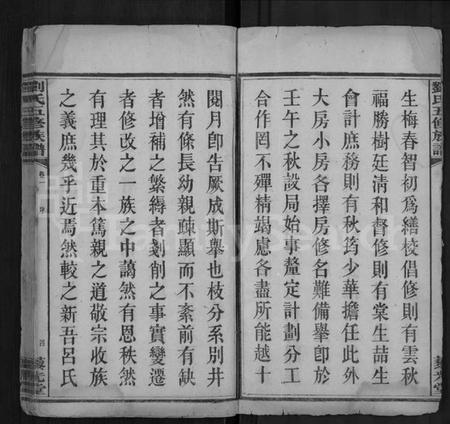 劉氏五修族譜
生梅春智初爲繕校倡修則有雲秋
福勝樹廷清和督修則有棠生喆生
會計庶務則有秋筠少華擔任此外
大房小房各擇房修名難備舉卽於
壬午之秋設局始事釐定計劃分工
合作罔不殫精竭慮各盡所能越十
閱月卽告厥成斯舉也枝分系別井
然有條長幼親疎顯而不紊前有缺
者增補之繁縟者剗削之事實變遷
者修改之一族之中藹然有恩秩然
有理其於重本篤親之道敬宗收族
之義庶幾乎近焉然較之新吾呂氏
劉氏五修族譜
卷一
序
四